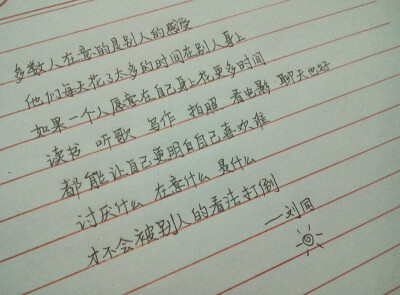 多数人在意的是别人的感受
他们每天花了太多的时间在别人身上
如果一个人愿意在自己身上花更多时间
读书 听歌 写作 拍照 看电影 聊天也好
都能让自己更明白自己喜欢谁
讨厌什么 在意什么 是什么
才不会被别人的看法打倒
——刘同